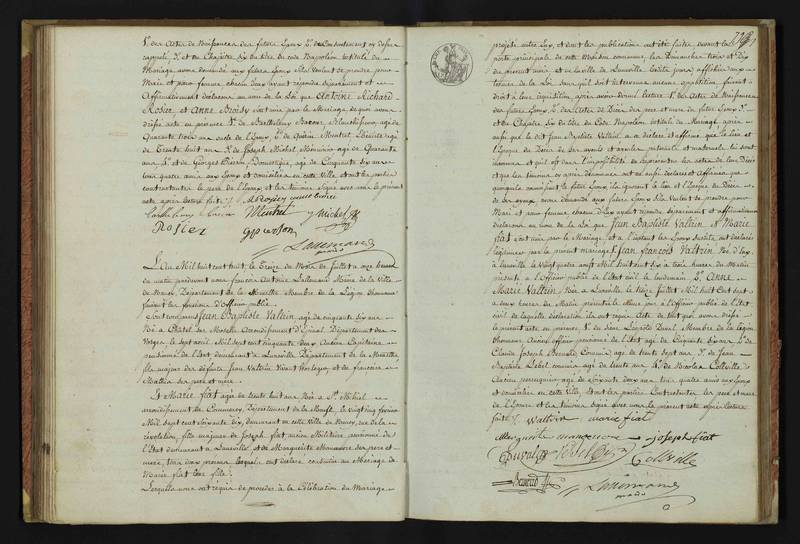 1.° des Actes de Naissances des futurs Epoux 2.° du Consentement cy dessus
rappellé 3.° et du Chapitre Six du titre du code Napoléon intitulé du
Mariage avons demandé aux futurs Epoux s'ils veulent se prendre pour
Mari et pour femme chacun d'eux ayant répondu séparément et
affirmativement déclarons au nom de la Loi que Antoine Richard
Rosier et Anne Croisy sont unis par le Mariage de quoi avons
dressé acte en présence 1.° de Barthelemy
quarante trois ans oncle de l'Epoux, 2.° de
de trente huit ans 3.° de Joseph Michel Menuisier agé de quarante
ans, 4.° et de Georges Pierson Domestique, agé de Cinquante six ans
tous quatre amis aux Epoux et domiciliés en cette Ville et ont les parties
contractantes le pere de l'Epoux et les témoins signé avec nous le présent
acte après lecture faite
Rosier Michel
G Pierson
Lallemand
L'An Mil huit cent huit, le Treize du Mois de Juillet a onze heures
du matin pardevant nous françois Antoine Lallemand Maire de la Ville
de Nancy, Département de la Meurthe Membre de la Légion d'honneur
faisant les fonctions d'officier public
Sont comparus Jean Baptiste Valtrin agé de cinquante six ans
Né à Chatel sur Moselle Arrondissement d'Epinal Département des
Vosges le sept avril Mil sept cent cinquante deux Ancien Capitaine
pensionné de l'Etat demeurant à Lunéville Département de la Meurthe,
fils majeur des défunts Jean Valtrin Vivant horloger et de françoise
Mathieu ses pere et mere.
Et Marie fiat agée de trente huit ans Née à S.t Mihiel
arrondissement de Commercy, Département de la Meuse, le vingt six fevrier
Mil sept cent soixante dix, demeurant en cette Ville de Nancy, rue de la
révolution, fille majeure de Joseph fiat ancien Militaire pensionné de
l'Etat demeurant à Lunéville et de Marguerite Mangeone ses pere et
mere, tous deux présens lesquels ont déclaré consentir au Mariage de
Marie fiat leur fille
Lesquels nous ont requis de procéder à la Célébration du Mariage
projetté entre Eux, et dont les publications ont été faites devant la
porte principale de cette Maison commune, les Dimanches trois et Dix
du présent mois et en la ville de Lunéville
termes de la Loi sans qu'il soit intervenu aucune opposition, faisant
droit à leur requisition, après avoir donné lecture 1.° des Actes de Naissances
des futurs Epoux 2.° des Actes de Décès des pere et mere du futur Epoux 3.°
et du Chapitre Six du titre du Code Napoléon intitulé du Mariage, après
aussi que le dit Jean Baptiste Valtrin a déclaré et affirmé que le lieu et
l'Epoque du Décès de ses ayeuls et ayeules paternels et maternels lui sont
inconnus et qu'il est dans l'impossibilité de représenter les actes de leur Décès
et que les témoins cy après dénommés ont aussi déclaré et affirmé que
quoiqu'ils connaissent le futur Epoux ils ignorent le lieu et l'Epoque du Décès
de ses ayeux, avons demandé aux futurs Epoux s'ils veulent se prendre pour
Mari et pour femme chacun d'Eux ayant répondu séparément et affirmativement
déclarons au nom de la Loi que Jean Baptiste Valtrin et Marie
fiat sont unis par le Mariage. Et à l'instant les Epoux susdits ont déclaré
légitimer par le présent mariage 1.° Jean françois Valtrin Né d'Eux
à Lunéville le Vingt quatre avril Mil huit cent six à trois heures du Matin
présenté à l'officier public de l'Etat civil le lendemain. 2.° Anne
Marie Valtrin Née à Lunéville le treize Juillet Mil huit cent sept
à deux heures du Matin présentée le Même jour à l'officier public de l'Etat
civil de laquelle déclaration ils ont requis Acte de tout quoi avons dressé
le présent acte en présence 1.° du Sieur Léopold Duval Membre de la Légion
d'honneur Ancien officier pensionné de l'Etat agé de Cinquante six ans 2.° de
Claude Joseph Bernard Commis agé de trente sept ans 3.° de Jean
Baptiste Lebel commis agé de trente ans 4.° de Nicolas Colleville
Ancien perruquier agé de soixante deux ans tous quatre amis aux Epoux
et domiciliés en cette Ville, et ont les parties Contractantes les pere et mere
de l'Epouse et les témoins signé avec nous le présent acte après lecture
faite
Walterin marie fiat
Marguerite mangeone joseph fiat
Duval Lebel Colleville
Bernard
Lallemand